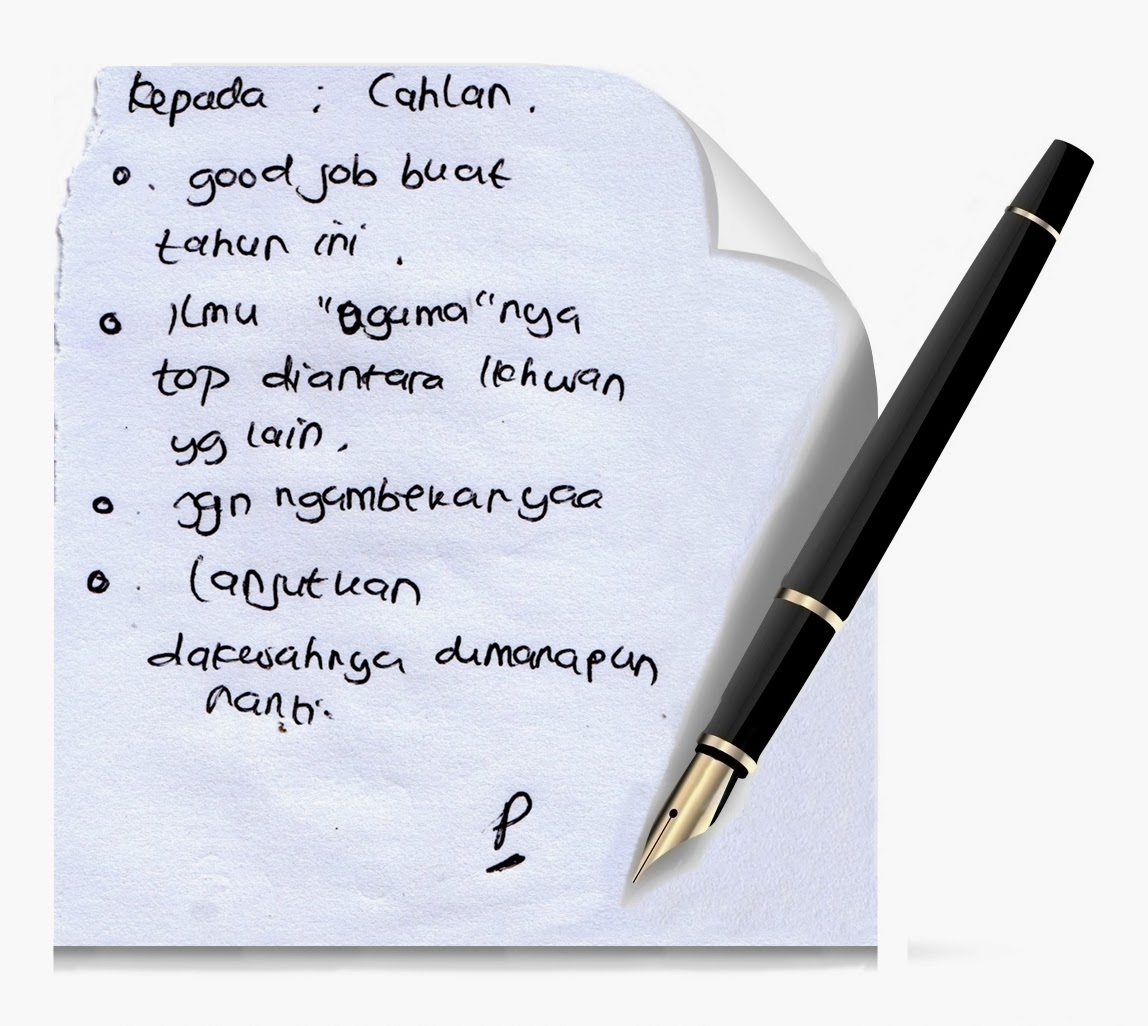 Kepada : Cahlan.
. good job buat
tahun ini.
ilmu "agama"nya
top diantara Ikhwan
yg lain.
jgn ngambekan yaa
. lanjutkan
dakwahnya dimanapun
nanti.
P